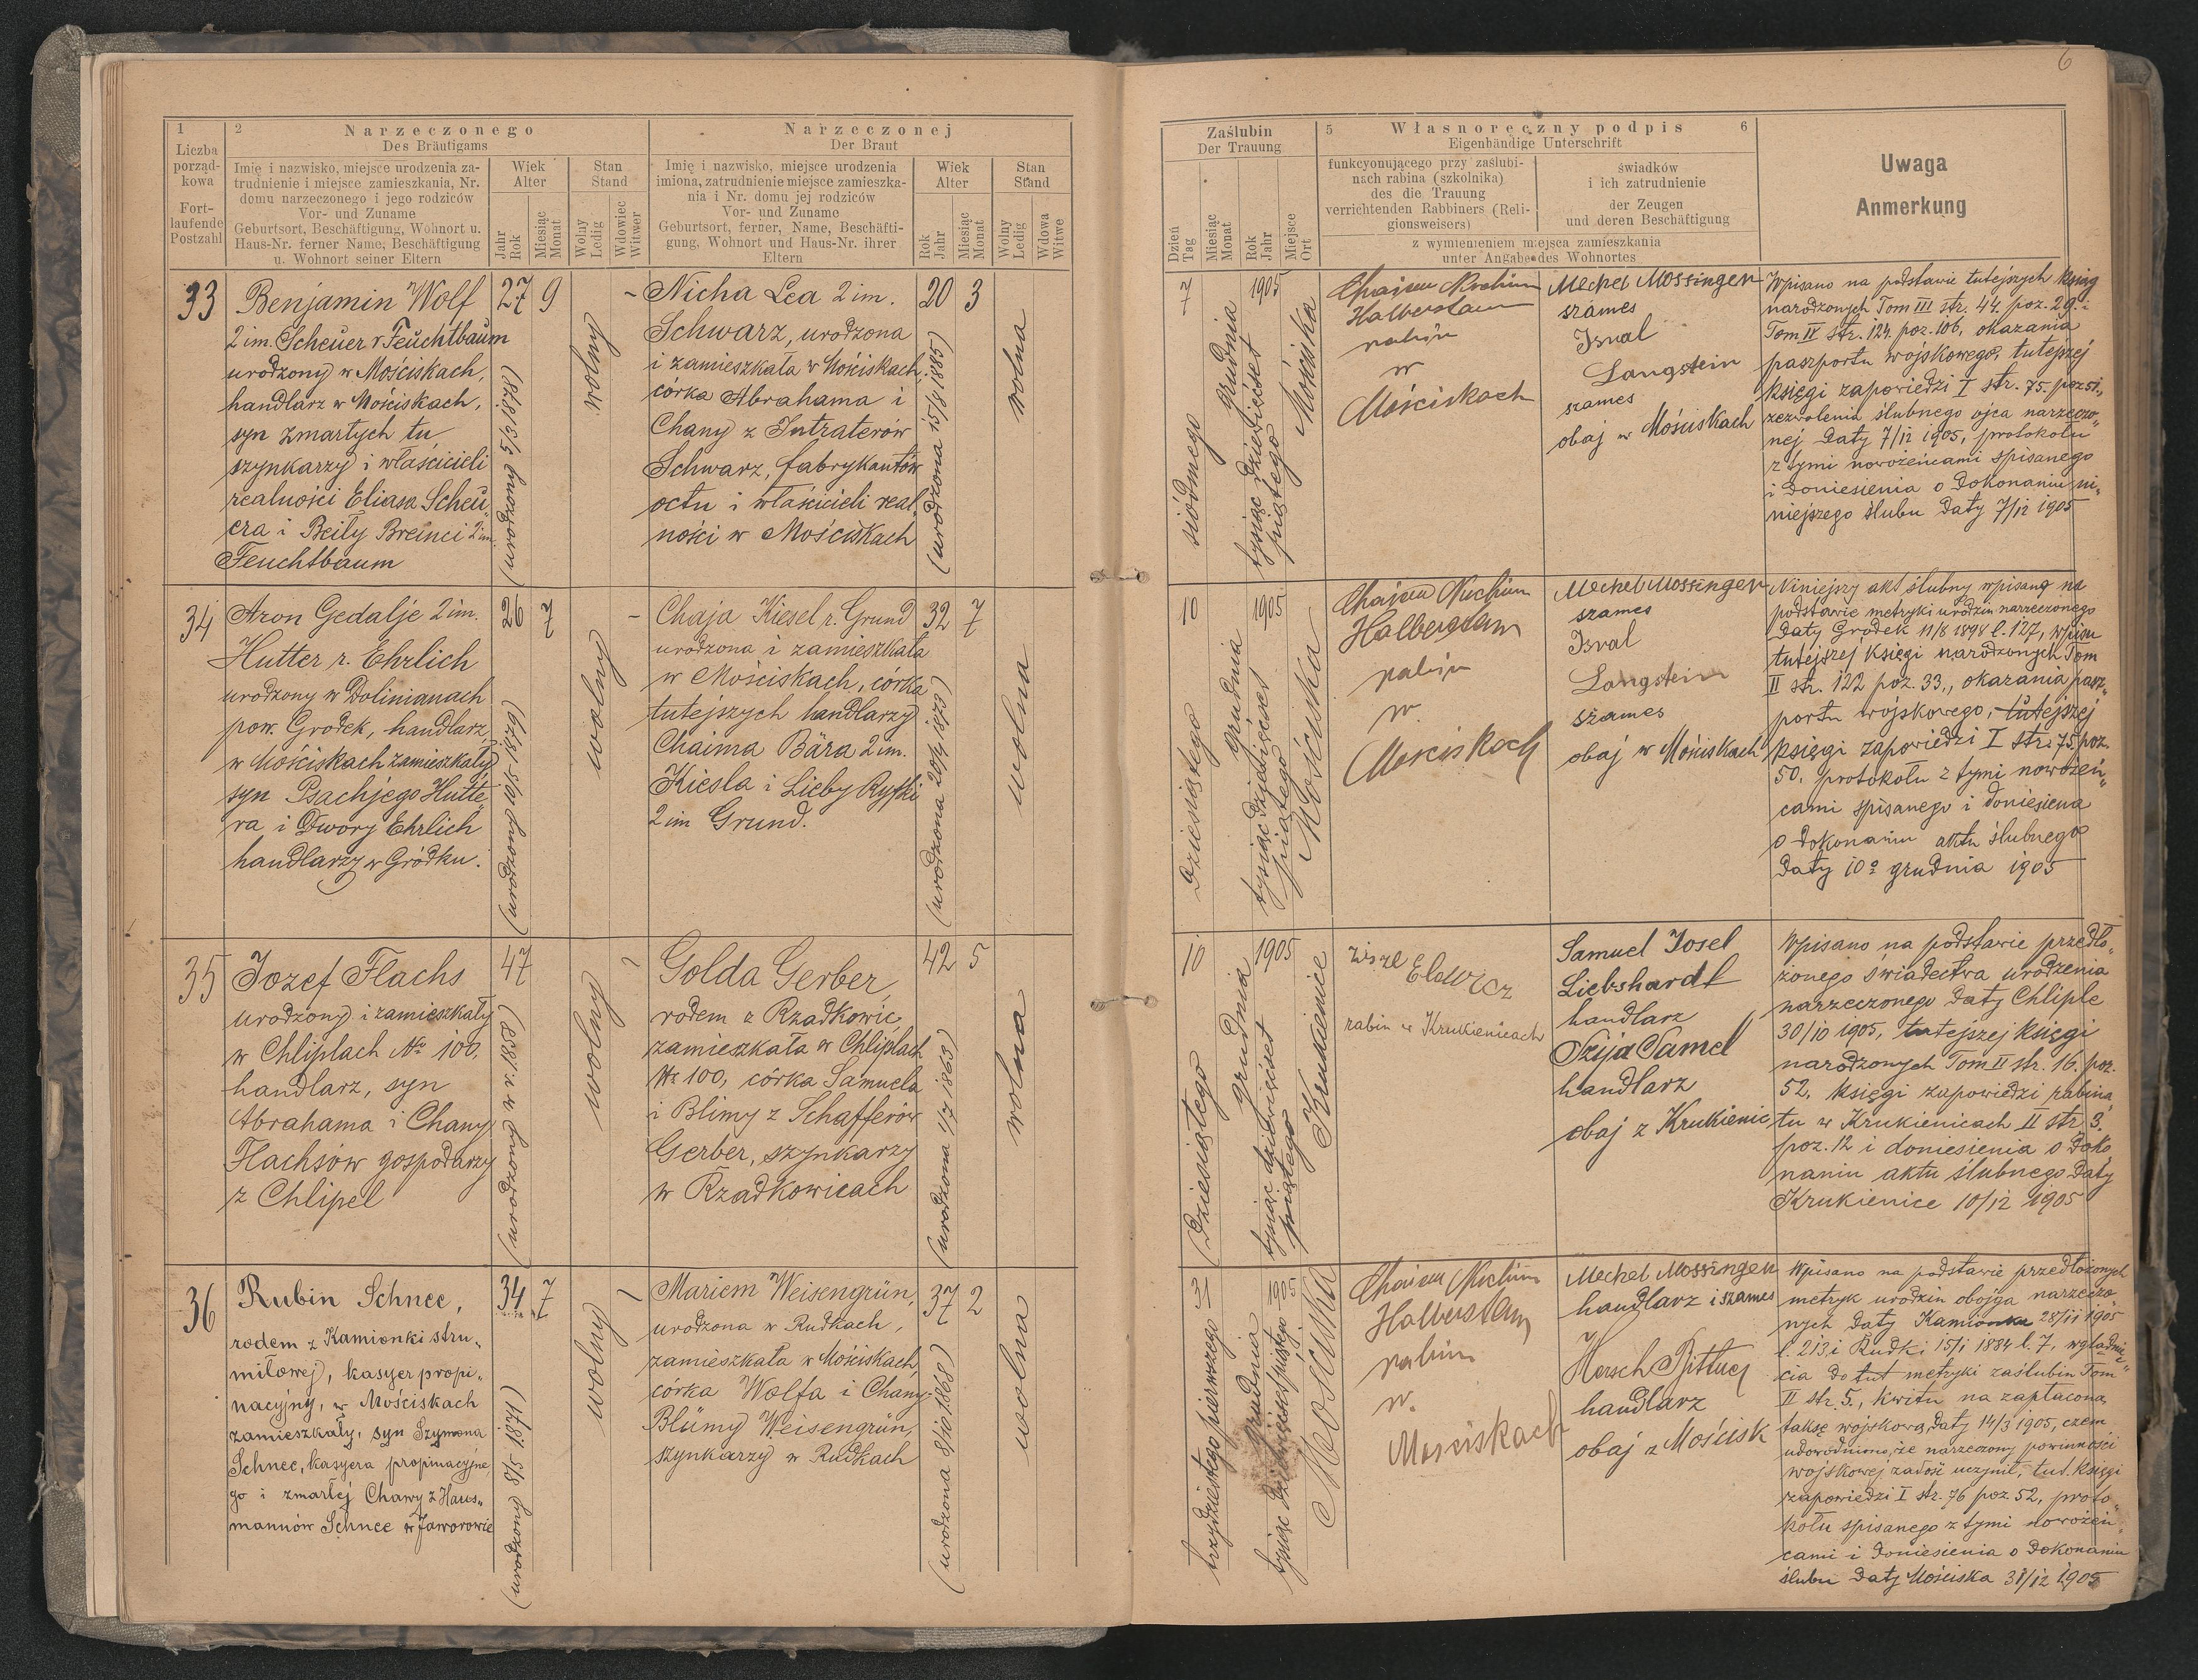 6
1
Liczba
porząd-
kowa
Fort-
laufende
Postzahl
2
Narzeczonego
Des Bräutigams
Imię i nazwisko, miejsce urodzenia za-
trudnienie i miejsce zamieszkania, Nr.
domu narzeczonego i jego rodziców
Vor- und Zuname
Geburtsort, Beschäftigung, Wohnort u.
Haus-Nr. ferner Name, Beschäftigung
u. Wohnort seiner Eltern
Wiek
Alter
Jahr
Rok
Miesiąc
Monat
Stan
Stand
Wolny
Ledig
Wdowiec
Witwer
Narzeczonej
Der Braut
Imię i nazwisko, miejsce urodzenia
imiona, zatrudnienie miejsce zamieszka-
nia i Nr. domu jej rodziców
Vor- und Zuname
Geburtsort, ferner, Name, Beschäfti-
gung, Wohnort und Haus-Nr. ihrer
Eltern
Wiek
Alter
Rok
Jahr
Miesiąc
Monat
Stan
Stand
Wolny
Ledig
Wdowa
Witwe
Zaślubin
Der Trauung
Dzień
Tag
Miesiąc
Monat
Rok
Jahr
Miejsce
Ort
5 Własnoręczny podpis 6
Eigenhändige Unterschrift
funkcyonującego przy zaślubi-
nach rabina (szkólnika)
des die Trauung
verrichtenden Rabbiners (Reli-
gionsweisers)
świadków
i ich zatrudnienie
der Zeugen
und deren Beschäftigung
z wymienieniem miejsca zamieszkania
unter Angabe des Wohnortes
Uwaga
Anmerkung
33
Benjamin Wolf
2 im. Scheuer r Feuchtbaum
urodzony w Mościskach,
handlarz w Mościskach,
syn zmarłych tu
szynkarzy i właścicieli
realności Eliasa Scheu„
era i Beily Breinci 2 im.
Feuchtbaum
27 9
(urodzony 5/3 1878)
wolny
-
Nicha Lea 2 im.
Schwarz, urodzona
i zamieszkała w Mościskach,
córka Abrahama i
Chany z Intraterów
Schwarz, fabrykantów
octu i właścicieli real„
ności w Mościskach
20 3
(urodzona 15/9 1885)
wolna
7
siódmego
grudnia
1905
tysiąc dziewięćset
piątego
Mościska
Chaim Nuchim
Halberstam
rabin
w
Mościskach
Mechel Mossinger
szames
Isral
Langstein
szames
obaj w Mościskach
Wpisano na podstawie tutejszych ksiąg
narodzonych Tom III str. 44. poz. 29. i
Tom IV str. 124. poz. 106, okazania
paszportu wojskowego, tutejszej
księgi zapowiedzi I str. 75. poz 51,
zezwolenia ślubnego ojca narzeczo„
nej daty 7/12 1905, protokołu
z tymi nowożeńcami spisanego
i doniesienia o dokonaniu ni„
niejszego ślubu daty 7/12 1905
34
Aron Gedalje 2 im.
Hutter r. Ehrlich
urodzony w Dolinianach
pow. Grodek, handlarz,
w Mościskach zamieszkały
syn Psachjego Hutte„
ra i Dwory Ehrlich
handlarzy w Gródku.
26 7
(urodzony 10/5 1879)
wolny
-
Chaja Kiesel r. Grund
urodzona i zamieszkała
w Mościskach, córka
tutejszych handlarzy
Chaima Bära 2 im.
Kiesla i Lieby Ryfki
2 im Grund.
32 7
(urodzona 20/4 1873)
wolna
10
dziesiątego
grudnia
1905
tysiąc dziewięćset
piątego
Mościska
Chaim Nuchim
Halberstam
rabin
w.
Mościskach
Mechel Mossinger
szames
Isral
Langstein
szames
obaj w Mościskach
Niniejszy akt ślubny wpisano na
podstawie metryki urodzin narzeczonego
daty Grodek 11/8 1898 l. 127, wpisu
tutejszej księgi narodzonych Tom
II str. 122 poz. 33., okazania pasz„
portu wojskowego, tutejszej
księgi zapowiedzi I str. 75. poz.
50, protokołu z tymi nowożeń„
cami spisanego i doniesienia
o dokonaniu aktu ślubnego
daty 10º grudnia 1905
35
Jozef Flachs
urodzony i zamieszkały
w Chliplach No 100,
handlarz, syn
Abrahama i Chany
Flachsów gospodarzy
z Chlipel
47
(urodzony w r. 1858)
wolny
Golda Gerber,
rodem z Rzadkowic
zamieszkała w Chliplach
Nr 100, córka Samuela
i Blimy z Schafferów
Gerber, szynkarzy
w Rzadkowicach
42 5
(urodzona 1/7 1863)
wolna
10
(Dziesiątego
grudnia
1905
tysiąc dziewięćset
piątego
Krukienice
rabin w Krukienicach
Samuel Josel
Liebshardt
handlarz
Szija Samel
handlarz
obaj z Krukienic
Wpisano na podstawie przedło„
żonego świadectwa urodzenia
narzeczonego daty Chliple
30/10 1905, tutejszej księgi
narodzonych Tom II str. 16. poz.
52, księgi zapowiedzi rabina„
tu w Krukienicach II str 3.
poz. 12 i doniesienia o doko„
naniu aktu ślubnego daty
Krukienice 10/12 1905
36
Rubin Schnee,
rodem z Kamionki stru„
miłowej, kasyer propi„
nacyjny, w Mościskach
zamieszkały, syn Szymona
Schnee, kasyera propinacyjne„
go i zmarłej Chawy z Haus„
mannów Schnee w Jaworowie
34 7
(urodzony 8/5 1871)
wolny
Mariem Weisengrün,
urodzona w Rudkach,
zamieszkała w Mościskach,
córka Wolfa i Chany
Blümy Weisengrün,
szynkarzy w Rudkach
37 2
(urodzona 8/10 1868)
wolna
31
trzydziestego pierwszego
grudnia
1905
tysiąc dziewięćset piątego
Mościska
Chaim Nuchim
Halberstam
rabin
w.
Mościskach
Mechel Mossinger
handlarz i szames
Hersch
handlarz
obaj z Mościsk
Wpisano na podstawie przedłożonych
metryk urodzin obojga narzeczo„
nych daty Kamionka 28/11 1905
l. 213 i Rudki 15/1 1884 l. 7, wglądnię„
cia do tut metryki zaślubin Tom
II str. 5., kwitu na zapłaconą
taksę wojskową daty 14/3 1905, czem
udowodniono, że narzeczony powinności
wojskowej zadość uczynił, tut. księgi
zapowiedzi I str. 76 poz. 52, proto„
kołu spisanego z tymi nowożeń„
cami i doniesienia o dokonaniu
ślubu daty Mościska 31/12 1905